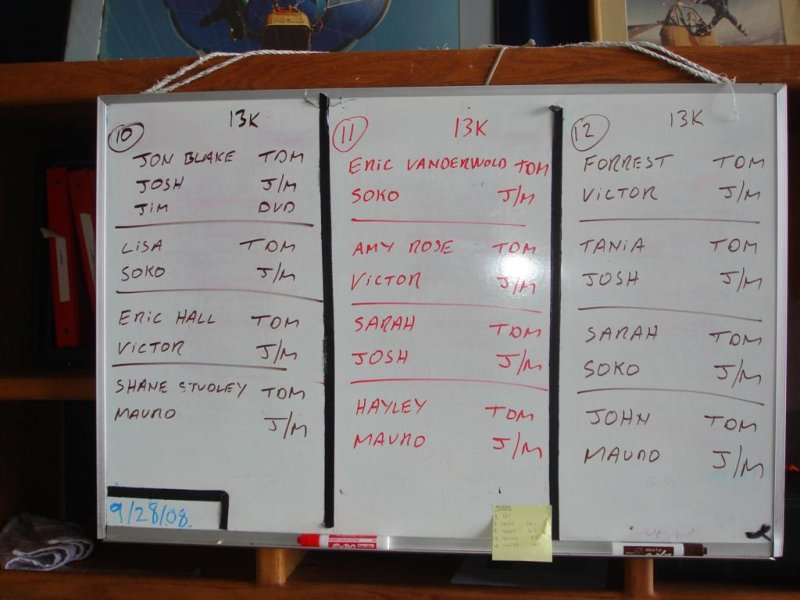 10 13K
JON BLAKE TDM
JOSH J/M
JIM DVD
LISA TDM
SOKO J/M
ERIC HALL TDM
VICTOR J/M
SHANE STUDLEY TDM
MAURO J/M
9/28/08.
11 13K
ERIC VANDERWOLD TDM
SOKO J/M
AMY ROSE TDM
VICTOR J/M
SARAH TDM
JOSH J/M
HAYLEY TDM
MAURO J/M
12 13K
FORREST TDM
VICTOR J/M
TANIA TDM
JOSH J/M
SARAH TDM
SOKO J/M
JOHN TDM
MAURO J/M